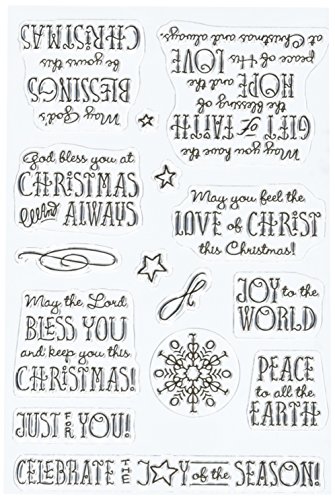 May God's
BLESSINGS
be yours this
CHRISTMAS
May you have the
GIFT of FAITH
the blessing of
HOPE and the
peace of His LOVE
at Christmas and always.
God bless you at
CHRISTMAS
and ALWAYS
May you feel the
LOVE of CHRIST
this Christmas!
May the Lord
BLESS YOU
and keep you this
CHRISTMAS!
JOY to the
WORLD
PEACE
to all the
EARTH
JUST FOR YOU!
CELEBRATE THE JOY of the SEASON!